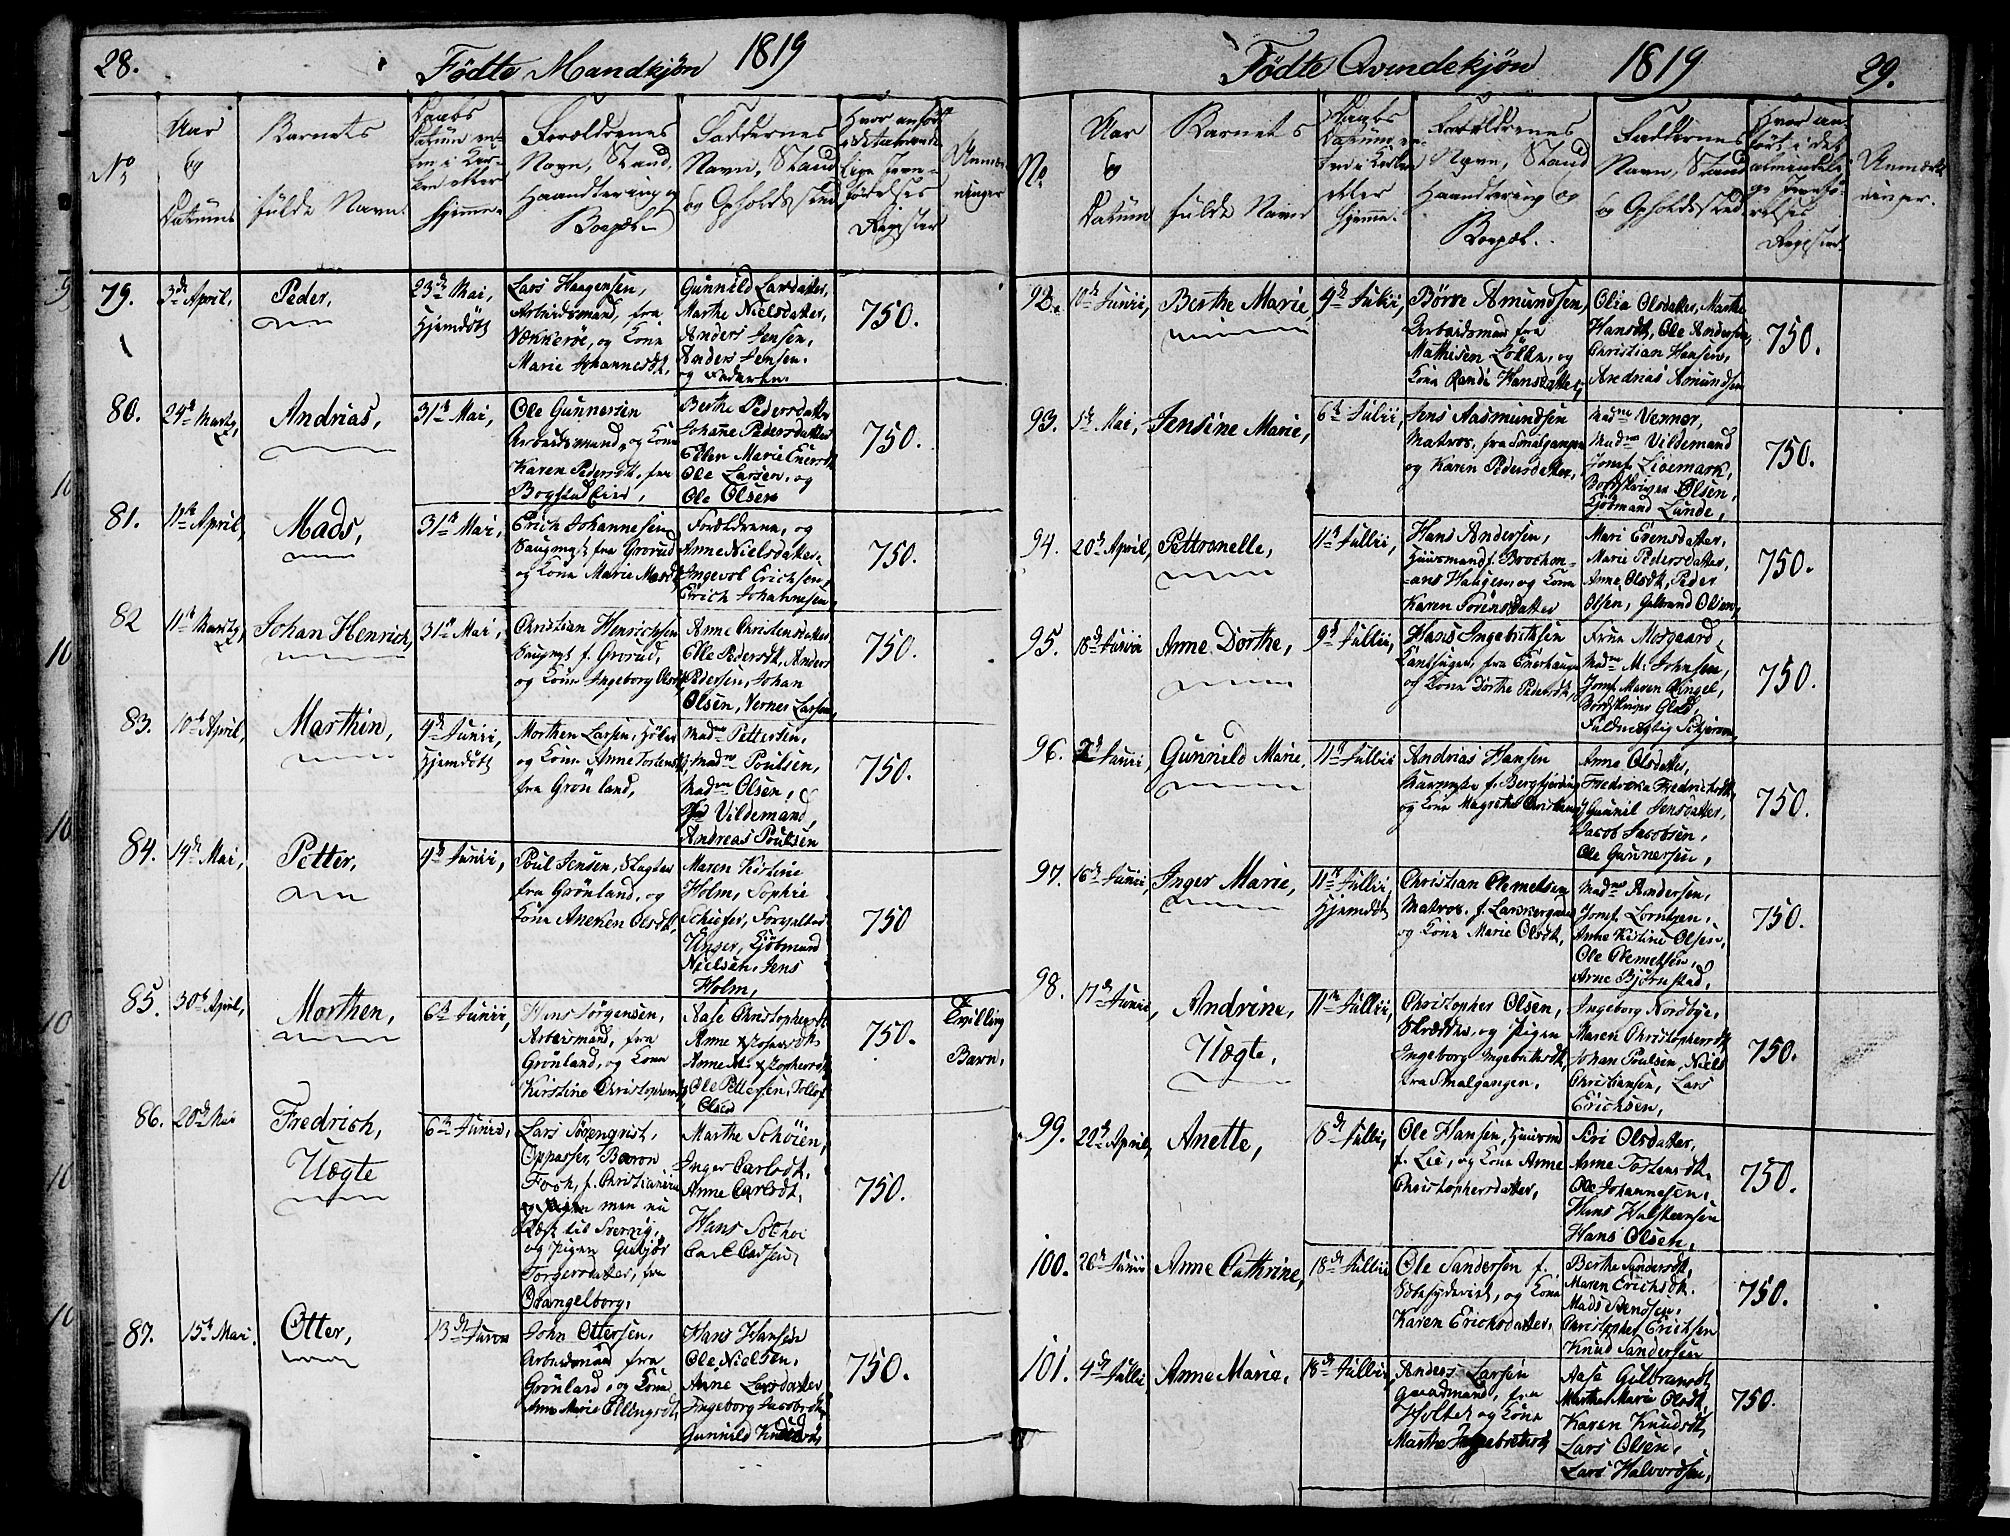 28.
Födte Mandkjön 1819
No
Aar
og
Datum
Barnets
fulde Navn
Daabs
Datum en-
ten i Kir-
ken eller
hjemme
Forældrenes
Navn, Stand,
Haandtering og
Boepæl
Faddernes
Navn, Stand
og Opholdssted
Hvor anført
i det alminde-
lige Jevn-
førelses
Register
Anmærk-
ninger
79. 3de April, Peder,
23de Mai,
Hjemdöbt
Lars Haagensen,
Arbeidsmand, fra
Vækkeröe, og Kone
Marie Johannesdt,
Gunnild Larsdatter,
Marthe Nielsdatter,
Anders Jensen,
Anders Jensen.
og Faderen.
750.
80. 24de Martz, Andrias,
31te Mai,
Ole Gunnersen
Arbeidsmand, og Kone
Karen Pedersdt, fra
Bogstad Eier,
Berthe Pedersdatter
Johanne Pedersdatter
Ellen Marie Enersdt
Ole Larsen, og
Ole Olsen
750.
81. 11te April, Mads,
31te Mai,
Erich Johannesen
Saugmst fra Grorud
og Kone Marie Madsdt,
Forældrene, og
Anne Nielsdatter,
Ingevol Erichsen,
Erich Johannesen,
750.
82 11te Martz, Johan Henrich,
31te Mai,
Christian Henrichsen
Saugmst f. Grorud,
og Kone Ingeborg Olsdt,
Anne Christensdatter
Elle Pedersdt, Anders
Pedersen, Johan
Olsen, Verner Larsen,
750.
83. 10de April, Marthin,
4de Junii,
Hjemdöbt
Morthen Larsen, Höker
og Kone Anne Torstensdt,
fra Grönland,
Madme Pettersen,
Madme Poulsen,
Madme Olsen,
Vildemand,
Andreas Poulsen
750.
84. 19de Mai, Petter,
4de Junii,
Poul Jensen, Slagter
fra Grönland, og
Kone Aneken Olsdt,
Maren Kirstine
Holm, Sophie
Schiefer, Forvalter
Unger, Kjöbmand
Nielsen, Jens
Holm,
750
85. 30te April, Morthen,
6te Junii,
Hans Jörgensen,
Arbeismand, fra
Grönland, og Kone
Kirstine Christophersdt,
Aase Christophersdt
Anne Xstophersdt,
Anne M. Xstophersdt,
Ole Pettersen, Tollef
Olsen
750.
Tvilling
Barn,
86. 20de Mai Fredrich,
Uægte
6te Junii,
Lars Sörenqvist,
Oppasser, Baron
Foch, f. Christiania
men nu
Ræst til Sverrig,
og Pigen Gubjör
Torgersdatter, fra
Ovangelborg,
Marthe Schöien,
Inger Carlsdt,
Anne Carlsdt,
Hans Sothoe
Carl Carlsen,
750.
87. 15de Mai. Otter,
13de Junii
John Ottersen,
Arbeidsmand fra
Grönland, og Kone
Ane Marie Ellingsdt,
Hans Hansen
Ole Nielsen,
Anne Larsdatter
Ingeborg Jacobsdt,
Gunnild Knudsdt,
750.
Födte Qvindekjön 1819
29.
No.
Aar
og
Datum
Barnets
fulde Navn
Daabs
Datum en-
ten i Kirken
eller
hjemme.
Forældrenes
Navn, Stand
Haandtering og
Boepæl.
Faddernes
Navn, Stand
og Opholdssted
Hvor an-
fört i det
almindeli-
ge Jevnfö-
relses
Register
Anmærk-
ninger.
92. 10de Junii, Berthe Marie,
4de Julii,
Börre Amundsen,
Arbeidsmand fra
Mathisen Lökke, og
Kone Randi Hansdatter,
Olia Olsdatter, Marthe
Hansdt, Ole Andersen,
Christian Hansen,
Andrias Amundsen
750.
93. 1te Mai, Jensine Marie,
6te Julii,
Jens Aasmundsen
Matros, fra Smalgangen
og Karen Pedersdatter,
Madme Verner,
Madme Vildemand
Jomf. Livemark,
Bordskriver Olsen,
Kjöbmand Lunde,
750.
94. 20de April, Pettronelle,
11te Jullii,
Hans Andersen,
Huusmand f. Brochon-
-ans Haugen, og Kone
Karen Sörensdatter
Mari Evensdatter,
Marie Pedersdatter,
Anne Olsdt, Peder
Olsen, Gulbrand Olsen,
750.
95. 18de Junii Anne Dorthe,
9de Jullii,
Hans Ingebrethsen
fra Enerhaugen
og Kone Dorthe Pedersdt,
Frue Mosgaard,
Madme M. Johnsen,
Jomf. Maren Ringel,
Bordskriver Glad
Fuldmægtig Schjerven
750.
96. 2de Junii, Gunnild Marie,
11te Jullii
Andrias Hansen
f. Bergfjerdingen
og Kone Magrethe Christensdt,
Anne Olsdatter,
Fredrikа Fredrichsdt,
Gunnil Jensdatter,
Jacob Jacobsen,
Ole Gunnersen,
750.
97. 16de Junii, Inger Marie,
11te Jullii,
Hjemdöbt
Christian Clemetsen
Matros, f. Lakkergaden
og Kone Marie Olsdt,
Madme Andersen,
Jomf. Lorntzen,
Anne Kirstine Olsen,
Ole Clemetsen,
Arne Björnstad,
750.
98. 17de Junii, Andrine,
Uægte,
11te Jullii,
Christopher Olsen,
Skrædder, og Pigen
Ingeborg Ingebrethsdt,
fra Smalgangen,
Ingeborg Nordbye,
Maren Christophersdt,
Johan Poulsen, Niels
Christiansen, Lars
Erichsen,
750.
99. 20de April, Anette,
18de Julli,
Ole Hansen, Huusmd
f. Lie, og Kone Anne
Christophersdatter,
Siri Olsdatter,
Anne Tostensdt,
Ole Johannesen,
Hans Halstensen
Hans Olsen,
750.
100. 26de Junii Anne Cathrine,
18de Jullii
Ole Sandersen f.
og Kone
Karen Erichsdatter,
Berthe Sandersdt,
Maren Erichsdt,
Mads Svendsen,
Christopher Erichsen
Knud Sandersen
750.
101. 4de Jullii Anne Marie,
18de Jullii,
Anders Larsen
Gaardmand, fra
Holter og Kone
Marthe Ingebrethsdt
Aase Gulbransdt,
Marthe Marie Olsdt,
Karen Knudsdt,
Lars Olsen,
Lars Halvordsen,
750.